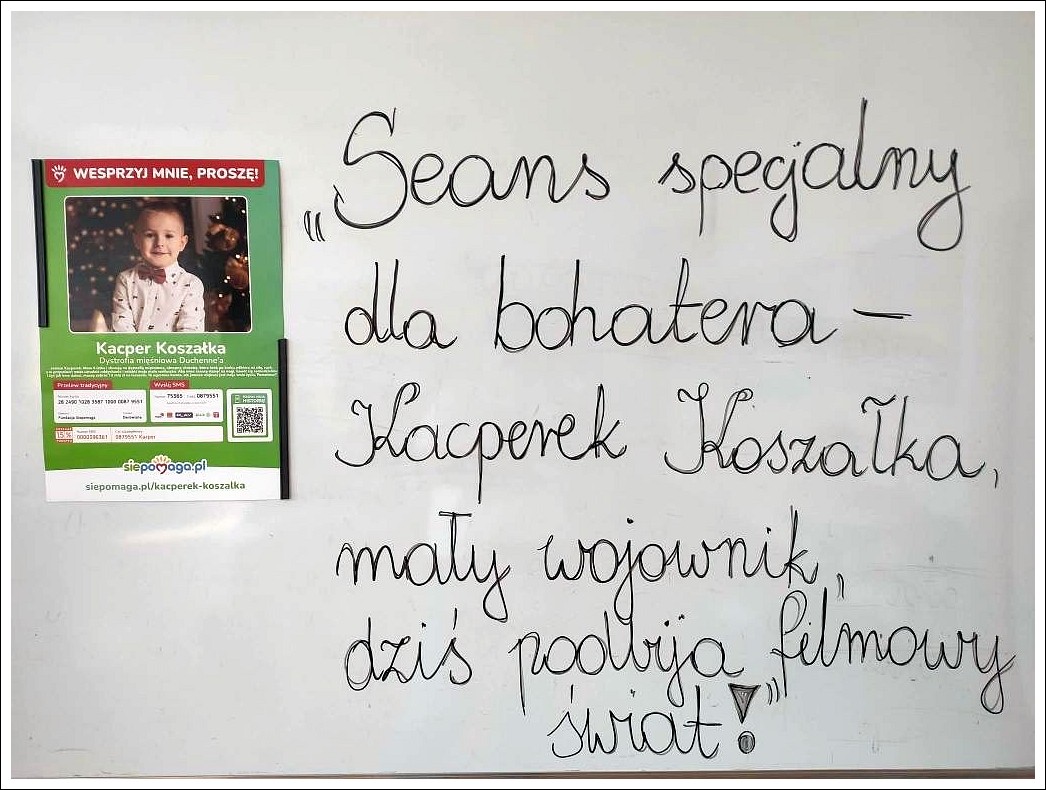 WESPRZYJ MNIE, PROSZĘ!
Kacper Koszałka
Dystrofia mięśniowa Duchenne'a
Przelew tradycyjny
Wyślij SMS
75365
0879551
Fundacja Siepomaga
Darowizna
0000396361
0879551 Kacper
siepomaga.pl
siepomaga.pl/kacperek-koszalka
„Seans specjalny
dla bohatera –
Kacperek Koszałka,
mały wojownik,
dziś podbija filmowy
świat!"